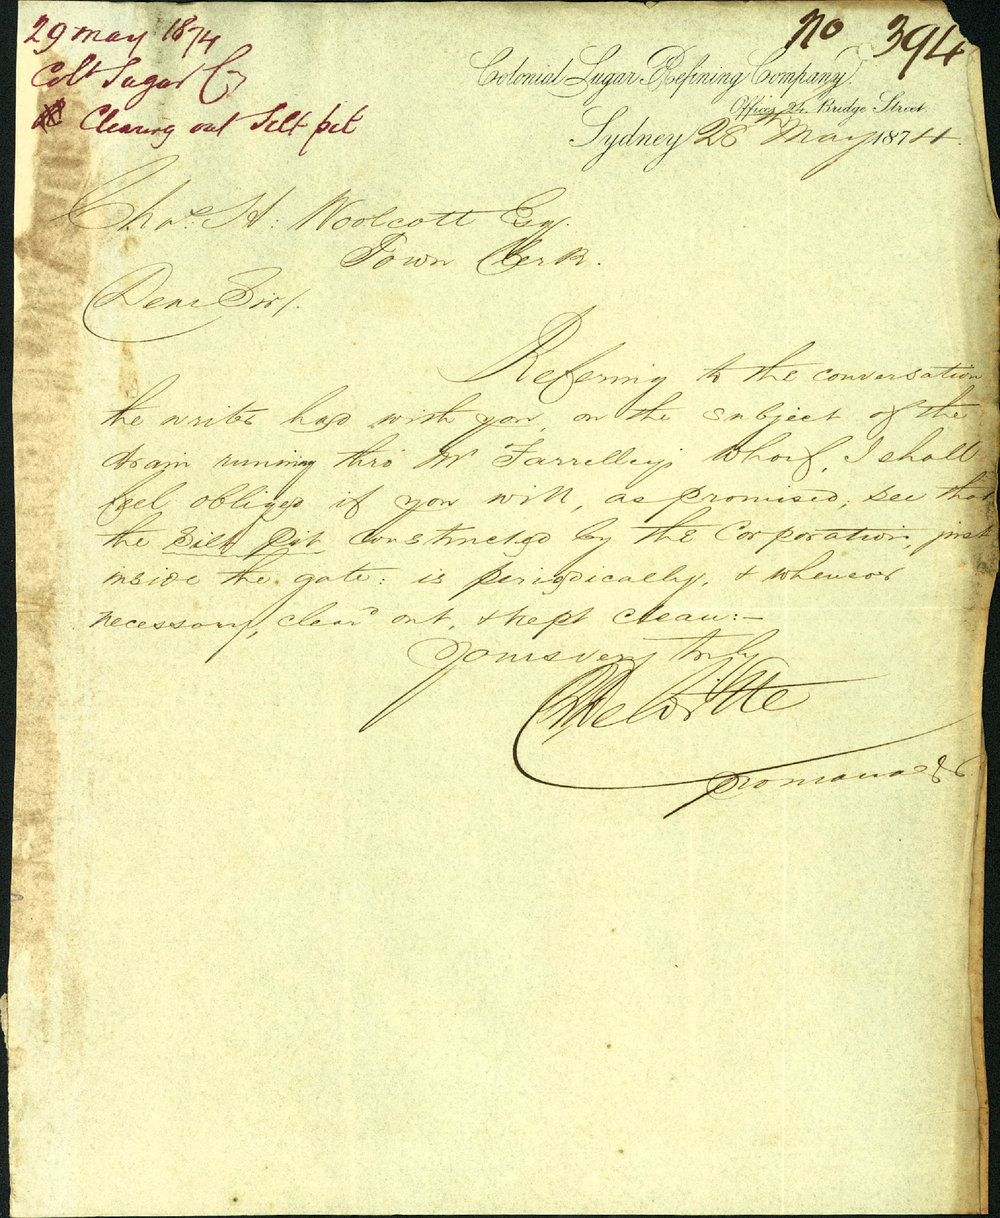 29 May 1874
Col Sugar Co
Clearing out Silt pit
No 394
Colonial Sugar Refining Company.
Offices, 24, Bridge Street.
Sydney 28th May 1874.
Chas. H: Woolcott Esq.
Town Clerk.
Dear Sir/.
Referring to the conversation
the writer had with you, on the subject of the
drain running thro Mr Farrelley's Wharf, I shall
feel obliged if you will, as promised, see that
the Silt Pit constructed by the Corporation, just
inside the gate: is periodically, & whenever
necessary, clear'd out, & kept clean:—
Yours very truly
Deloitte